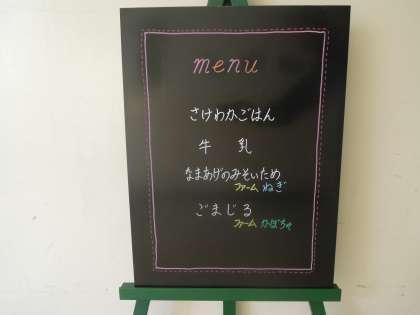 menu
さけわかごはん
牛乳
なまあげのみそいため
ファーム ねぎ
ごまじる
ファーム かぼちゃ